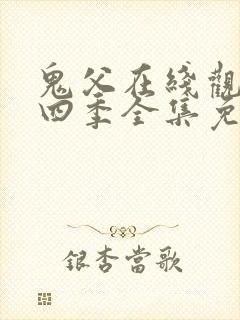 鬼父在綫觀
四季全集免
銀杏當歌